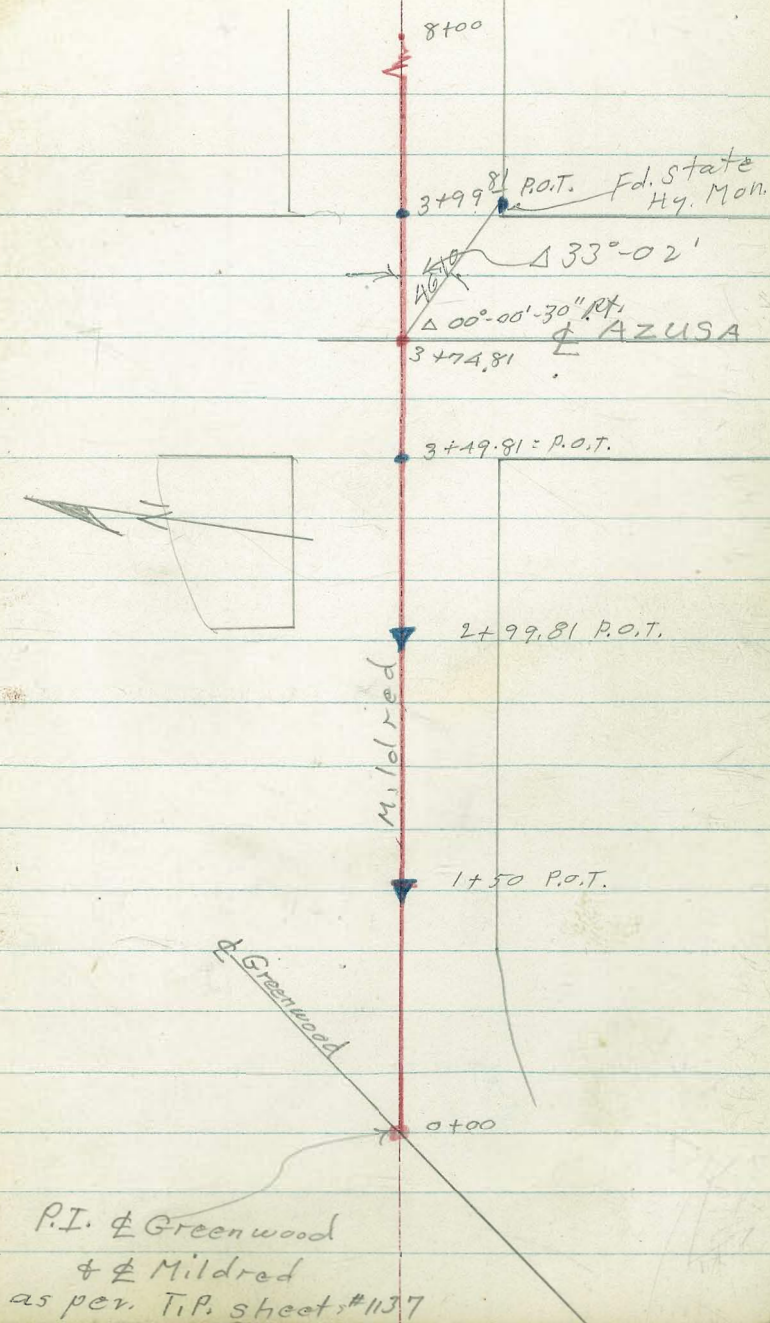 8+00
3+99 81 P.O.T.
Fd. State
Hy. Mon.
Δ 33°-02'
46.10
Δ 00°-00'-30" Rt.
℄ AZUSA
3+74.81
3+49.81 = P.O.T.
2+99.81 P.O.T.
Mildred
1+50 P.O.T.
℄ Greenwood
0+00
P.I. ℄ Greenwood
& ℄ Mildred
as per. T.P. sheet #1137